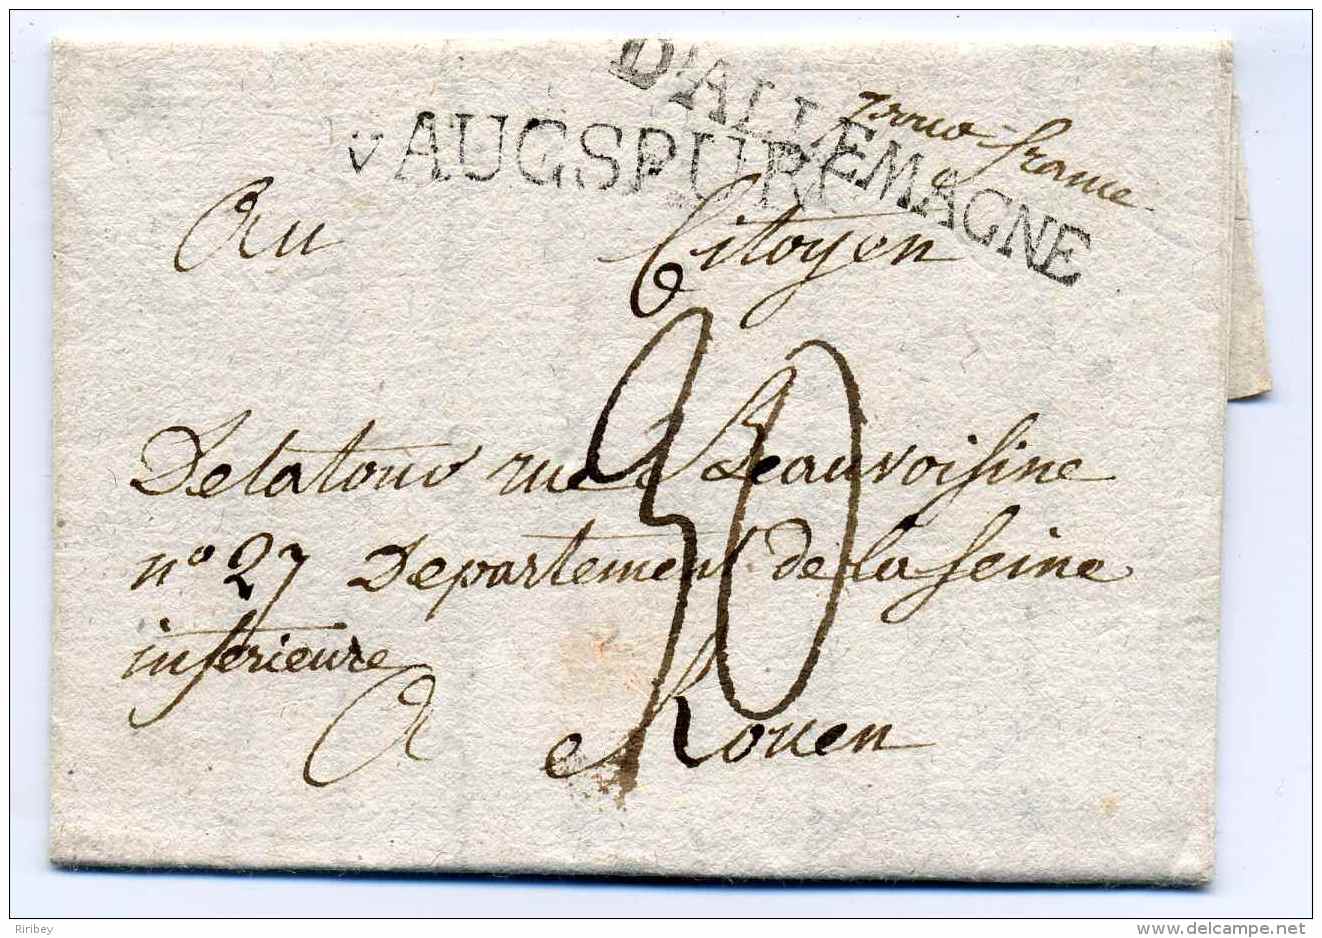 D'ALLEMAGNE
france
v AUGSPURG
Au Citoyen
Delatour rue Beauvoisine
n° 27 Departement de la Seine
inferieure
A Rouen
30
Riribey
www.delcampe.net